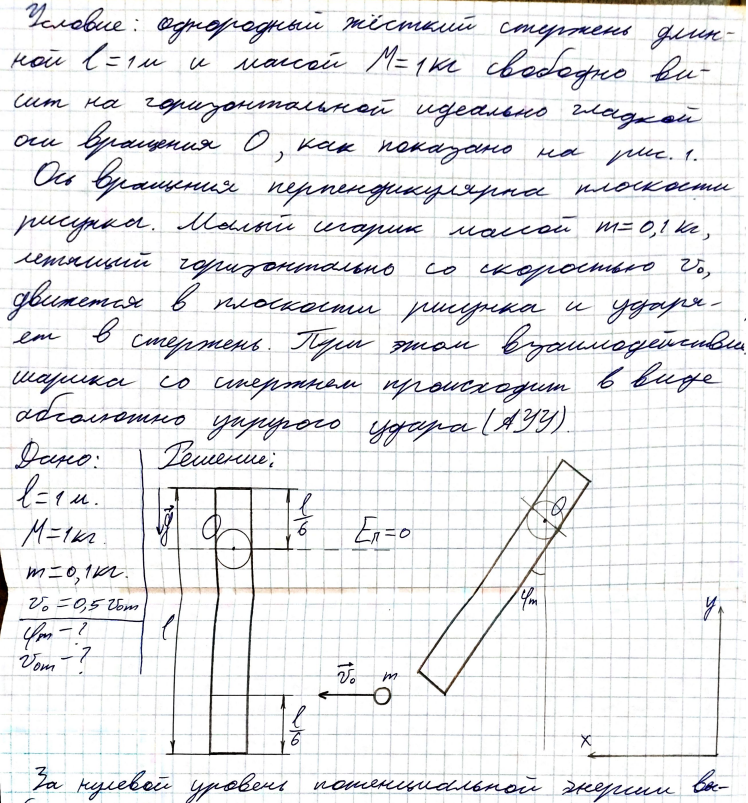 Условие: однородный жёсткий стержень длин-
ной l=1м и массой M=1кг свободно ви-
сит на горизонтальной идеально гладкой
оси вращения O, как показано на рис. 1.
Ось вращения перпендикулярна плоскости
рисунка. Малый шарик массой m=0,1кг,
летящий горизонтально со скоростью v₀,
движется в плоскости рисунка и ударя-
ет в стержень. При этом взаимодействии
шарика со стержнем происходит в виде
абсолютно упругого удара (АУУ).
Дано: Решение:
l=1м.
M=1кг.
m=0,1кг.
v₀=0,5v₀m
φm-?
v₀m-?
g
O
l/6
Eп=0
l
v₀ m
l/6
O
φm
y
x
За нулевой уровень потенциальной энергии вы-